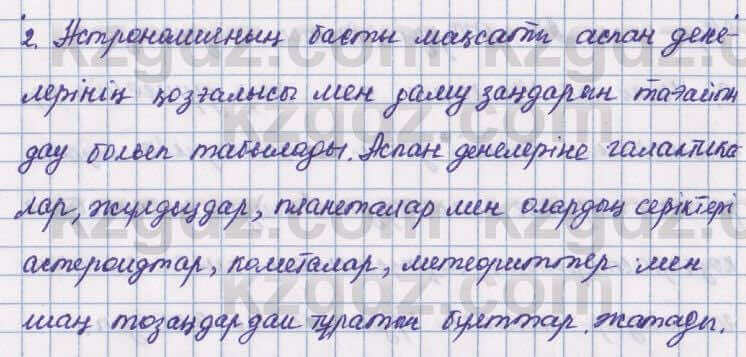 2. Астрономияның басты мақсаты аспан дене-
лерінің қозғалысы мен даму заңдарын тағайын
дау болып табылады. Аспан денелеріне галактика
лар, жұлдыздар, планеталар мен олардың серіктері
астероидтар, кометалар, метеориттер мен
шаң тозаңдардан тұратын бұлттар жатады.
kzgdz.com